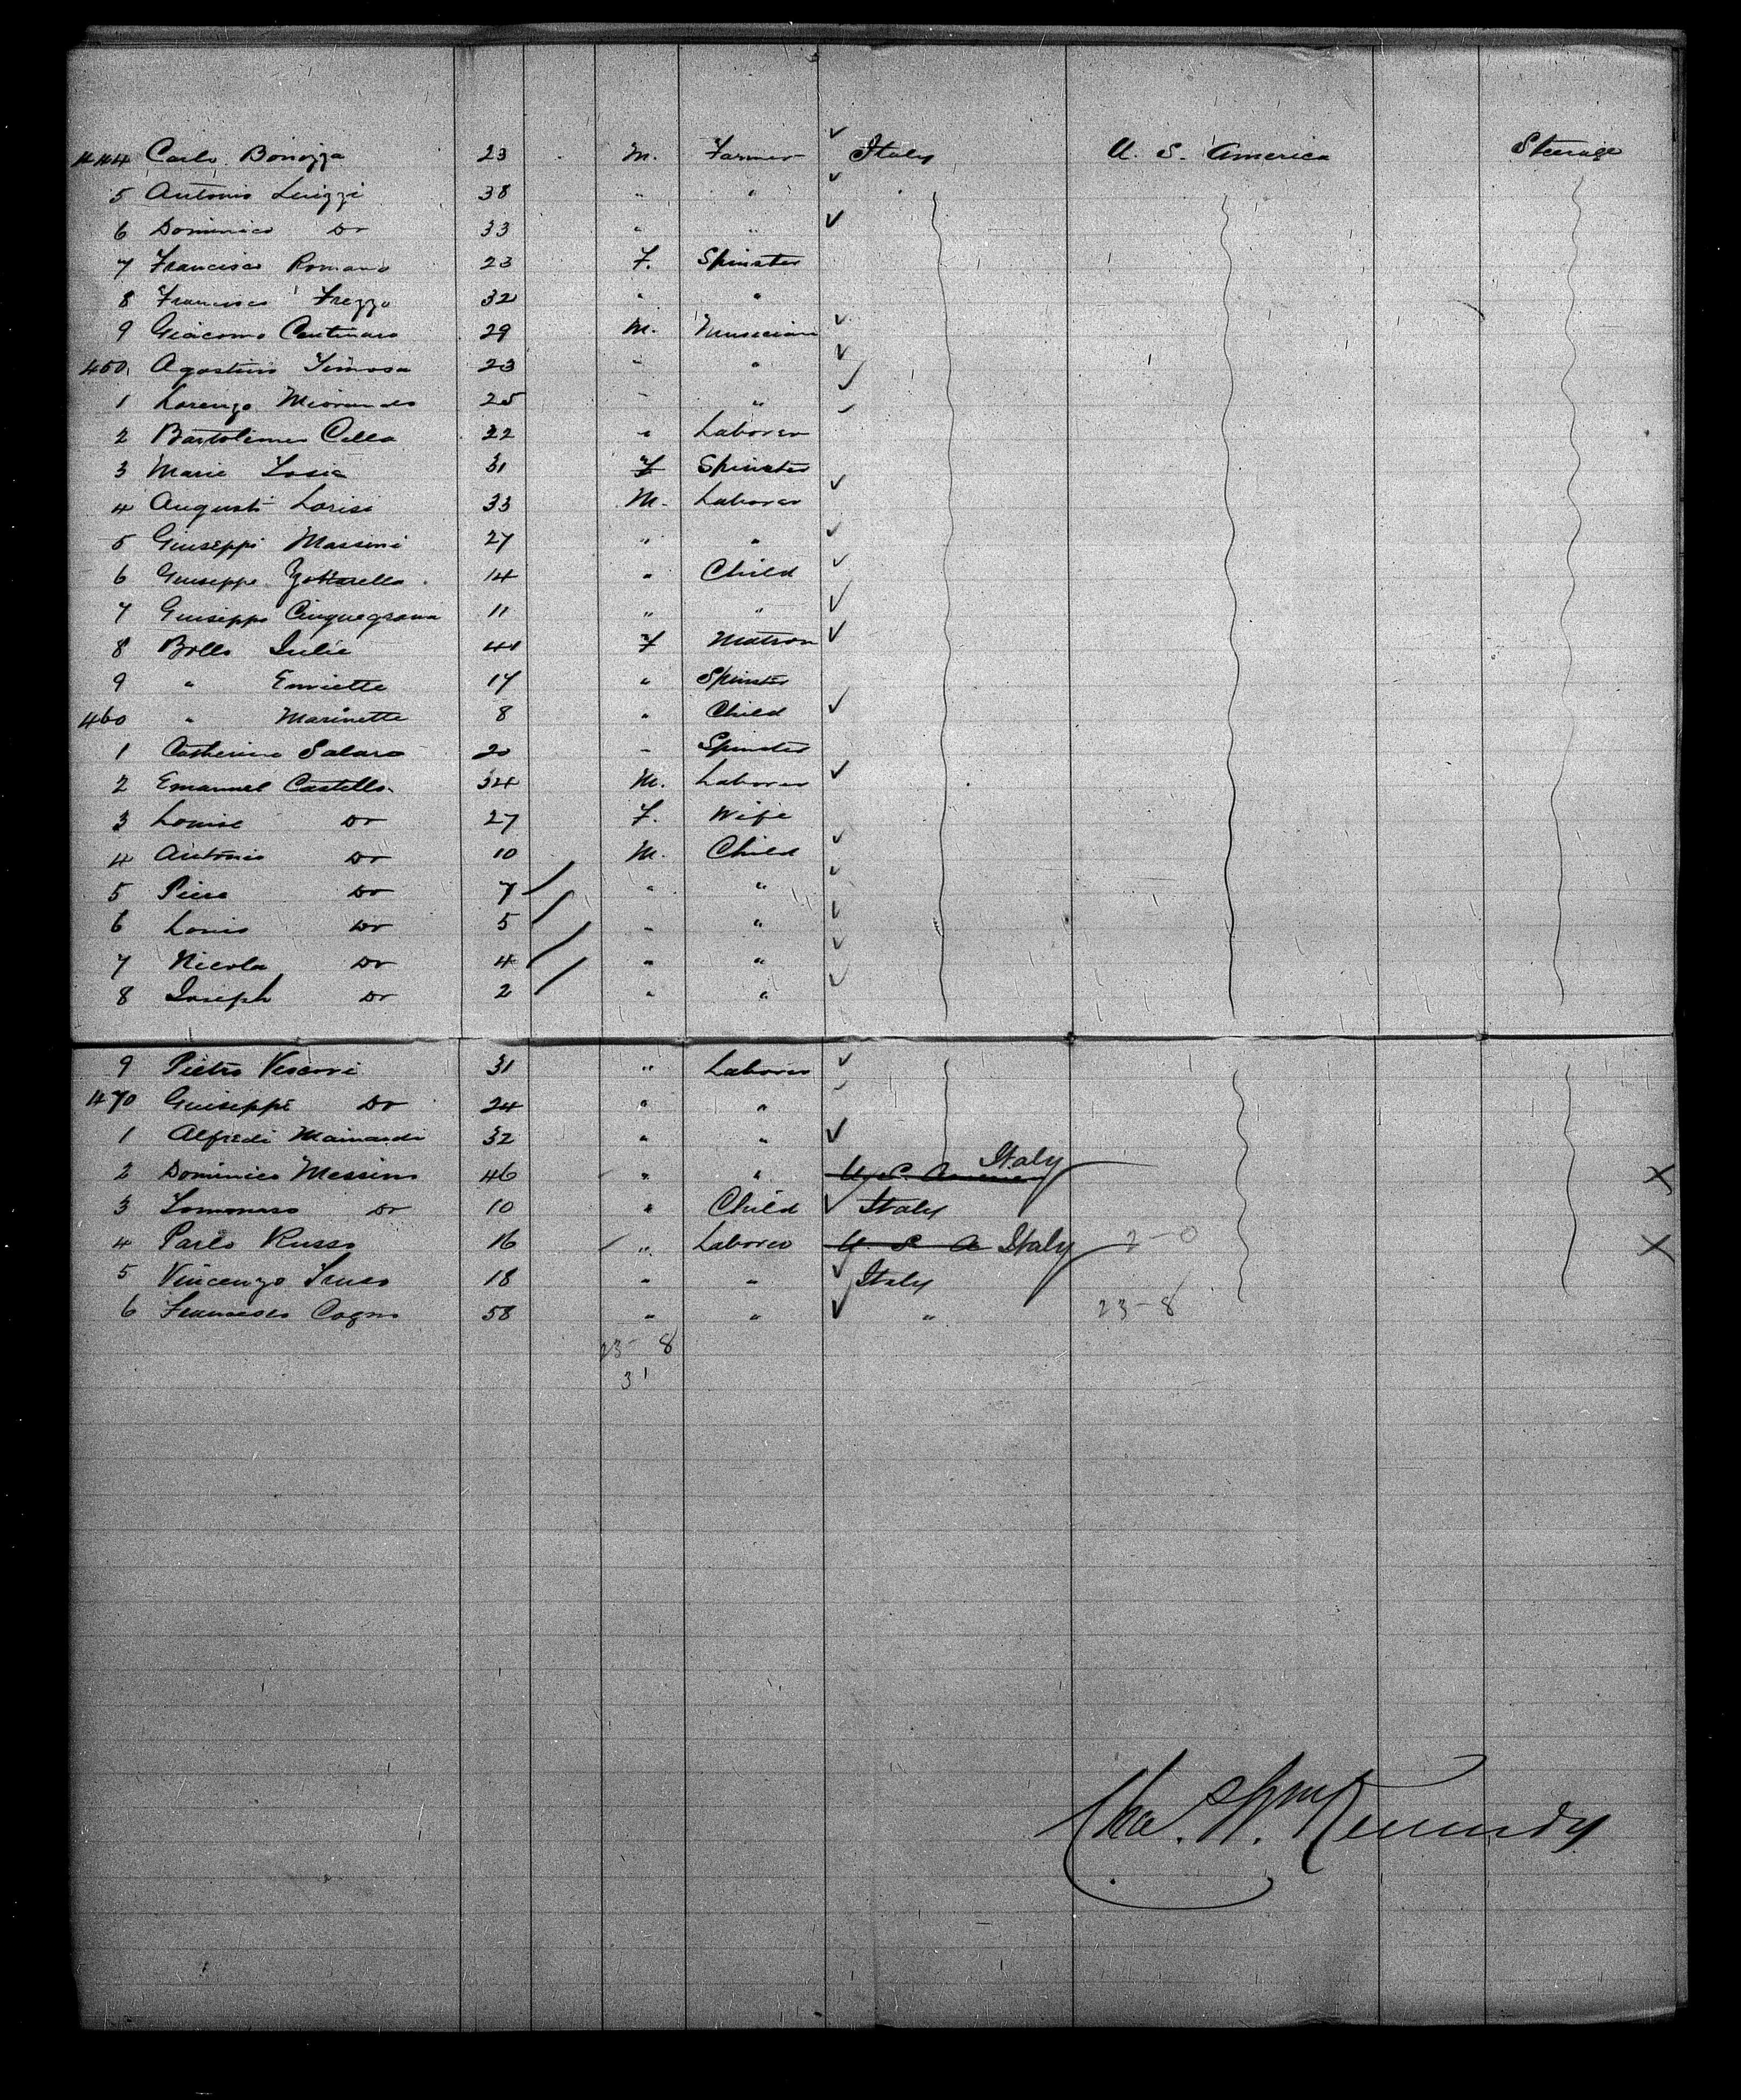 444 Carlo Bonozza 23 M. Farmer Italy U. S. America Steerage
5 Antonio Luizzi 38 " "
6 Dominico Do 33 " "
7 Francisca Romano 23 F. Spinster
8 Francisca Frezza 32 " "
9 Giacomo Centinaro 29 M. Musician
450 Agostino 23 " "
1 Lorenzo 25 " "
2 Bartolimeo Cella 22 " Laborer
3 Marie 31 F Spinster
4 Augusti Larisi 33 M. Laborer
5 Giuseppi Massini 27 " "
6 Giuseppe Zottarella 14 " Child
7 Giuseppe Cinquegrana 11 " "
8 Bollo Julie 40 F Matron
9 " Enriette 17 " Spinster
460 " Marinette 8 " Child
1 Catherine Salaro 20 " Spinster
2 Emanuel Castello 34 M. Laborer
3 Louise Do 27 F. Wife
4 Antonio Do 10 M. Child
5 Piero Do 7 " "
6 Louis Do 5 " "
7 Nicola Do 4 " "
8 Joseph Do 2 " "
9 Pietro Vescovi 31 " Laborer
470 Guiseppi Do 24 " "
1 Alfredi Mainardi 32 " "
2 Dominico Messino 46 " " U. S. America Italy X
3 Do 10 " Child Italy
4 Paolo Russo 16 " Laborer U S A Italy 2-0 X
5 Vincenzo 18 " " Italy
6 Francesco Cogno 58 " " " 23-8
23-8
31
Kennedy